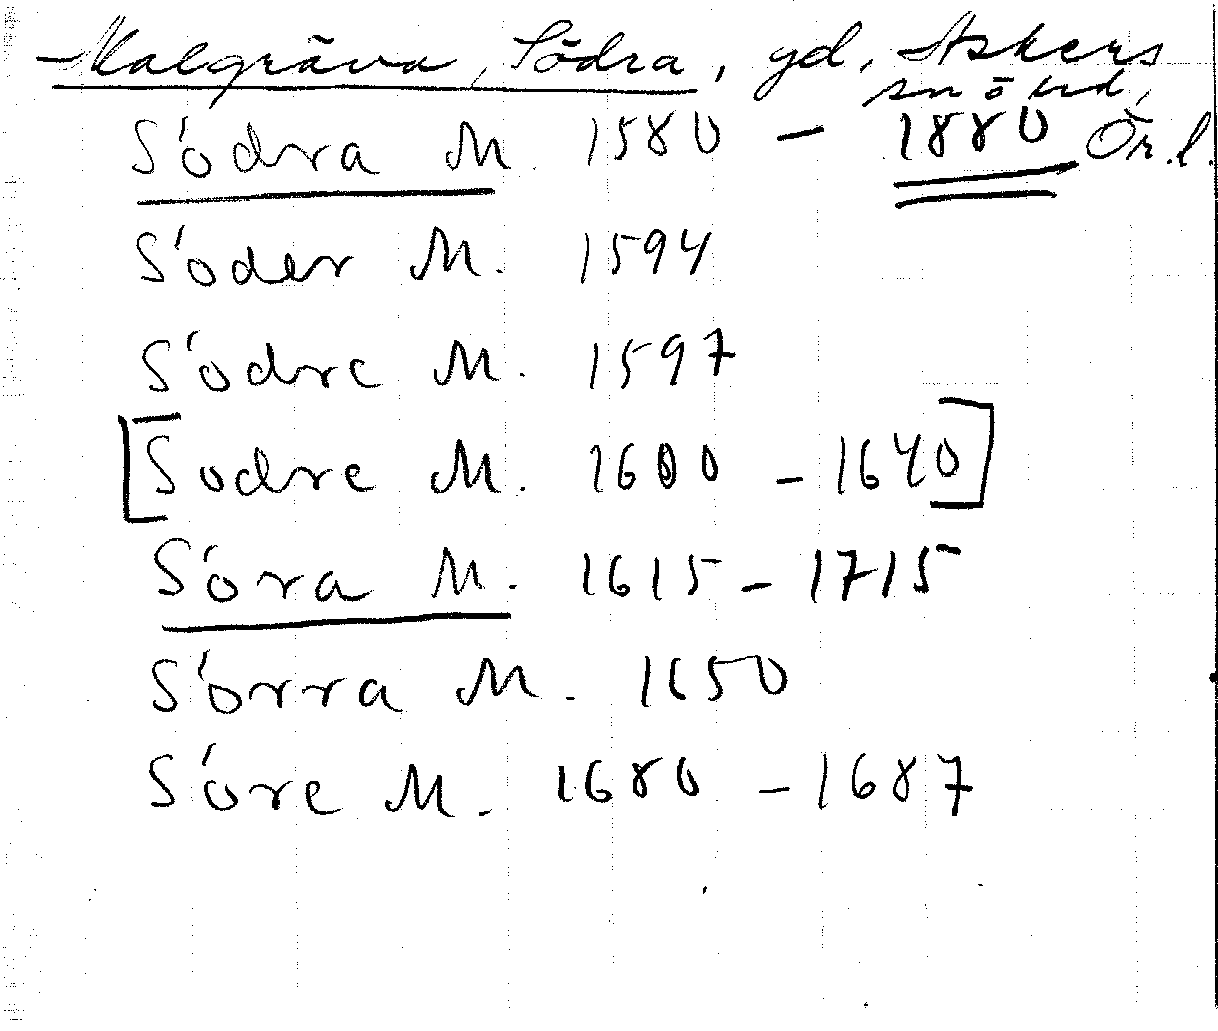 Malgräva, Södra, gd, Askers
sn ö hd,
Södra M. 1580 – 1880 Ör. l.
Söder M. 1594
Södre M. 1597
[Sodre M. 1600 – 1640]
Söra M. 1615 – 1715
Sörra M. 1650
Söre M. 1680 – 1687